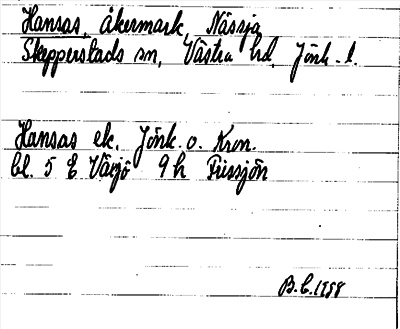 Hansas, åkermark, Nässja
Skepperstads sn, Västra hd, Jönk. l.
Hansas ek. Jönk. o. Kron.
bl. 5 E Växjö 9 h
B.C. 1958